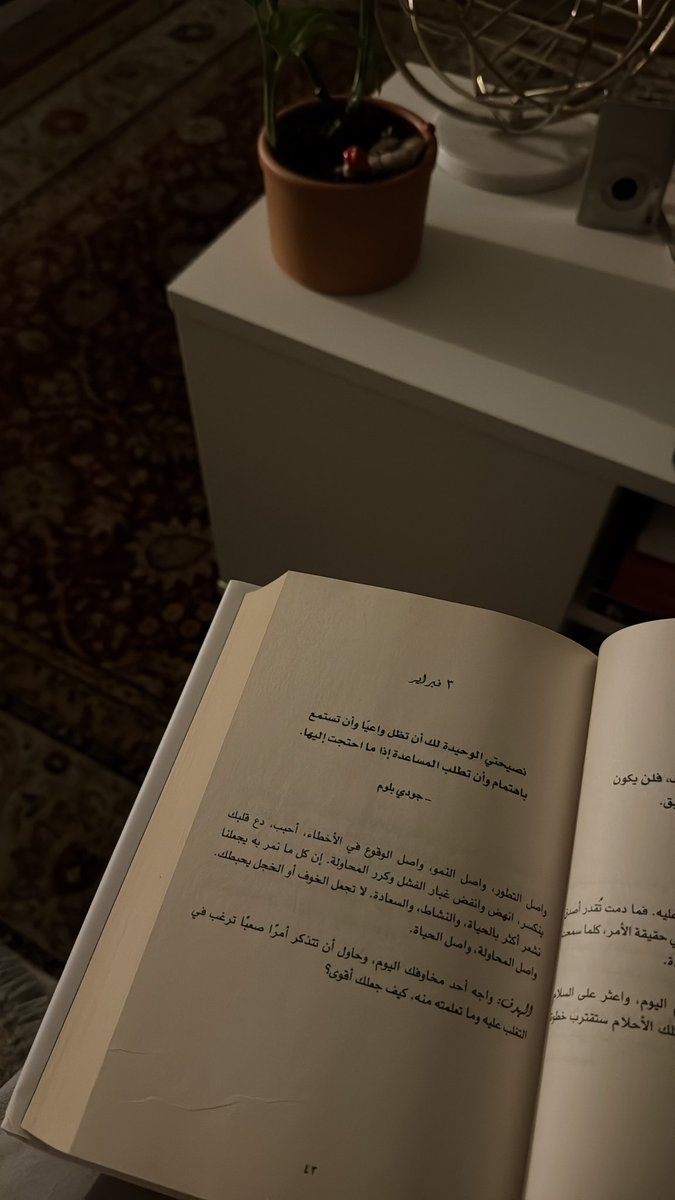 ٣ نبراير
نصيحتي الوحيدة لك أن تظل واعيًا وأن تستمع
باهتمام وأن تطلب المساعدة إذا ما احتجت إليها.
– جودي بلوم
واصل التطور، واصل النمو، واصل الوقوع في الأخطاء، أحبب، دع قلبك
ينكسر، انهض وانفض غبار الفشل وكرر المحاولة. إن كل ما نمر به يجعلنا
نشعر أكثر بالحياة، والنشاط، والسعادة. لا تجعل الخوف أو الخجل يحبطك.
واصل المحاولة، واصل الحياة.
الهدف: واجه أحد مخاوفك اليوم، وحاول أن تتذكر أمرًا صعبًا ترغب في
التغلب عليه وما تعلمته منه. كيف جعلك أقوى؟
٤٣
فلن يكون
عليه. فما دمت تُقدر
في حقيقة الأمر، كلما سمعت
اليوم، واعثر على السلام
الأحلام ستقترب خطوة